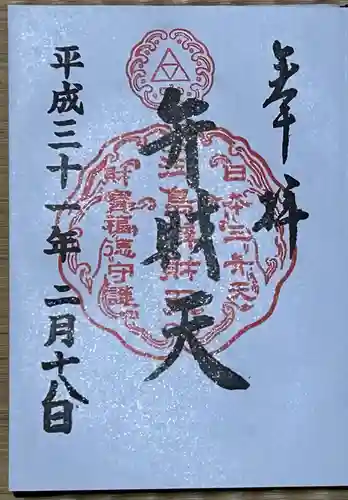 奉拝
弁財天
平成三十一年二月十八日
日本三弁天
財宝福徳守護